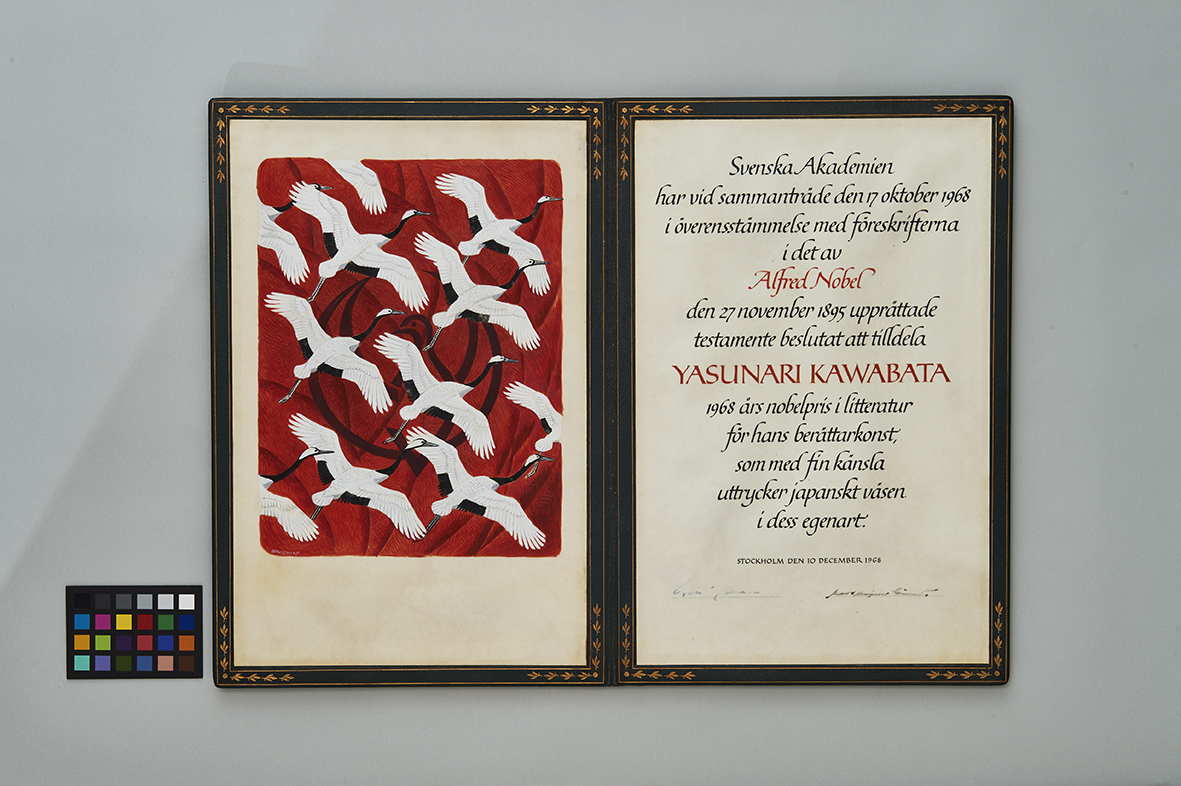 Svenska Akademien
har vid sammanträde den 17 oktober 1968
i överensstämmelse med föreskrifterna
i det av
Alfred Nobel
den 27 november 1895 upprättade
testamente beslutat att tilldela
YASUNARI KAWABATA
1968 års nobelpris i litteratur
för hans berättarkonst,
som med fin känsla
uttrycker japanskt väsen
i dess egenart.
STOCKHOLM DEN 10 DECEMBER 1968